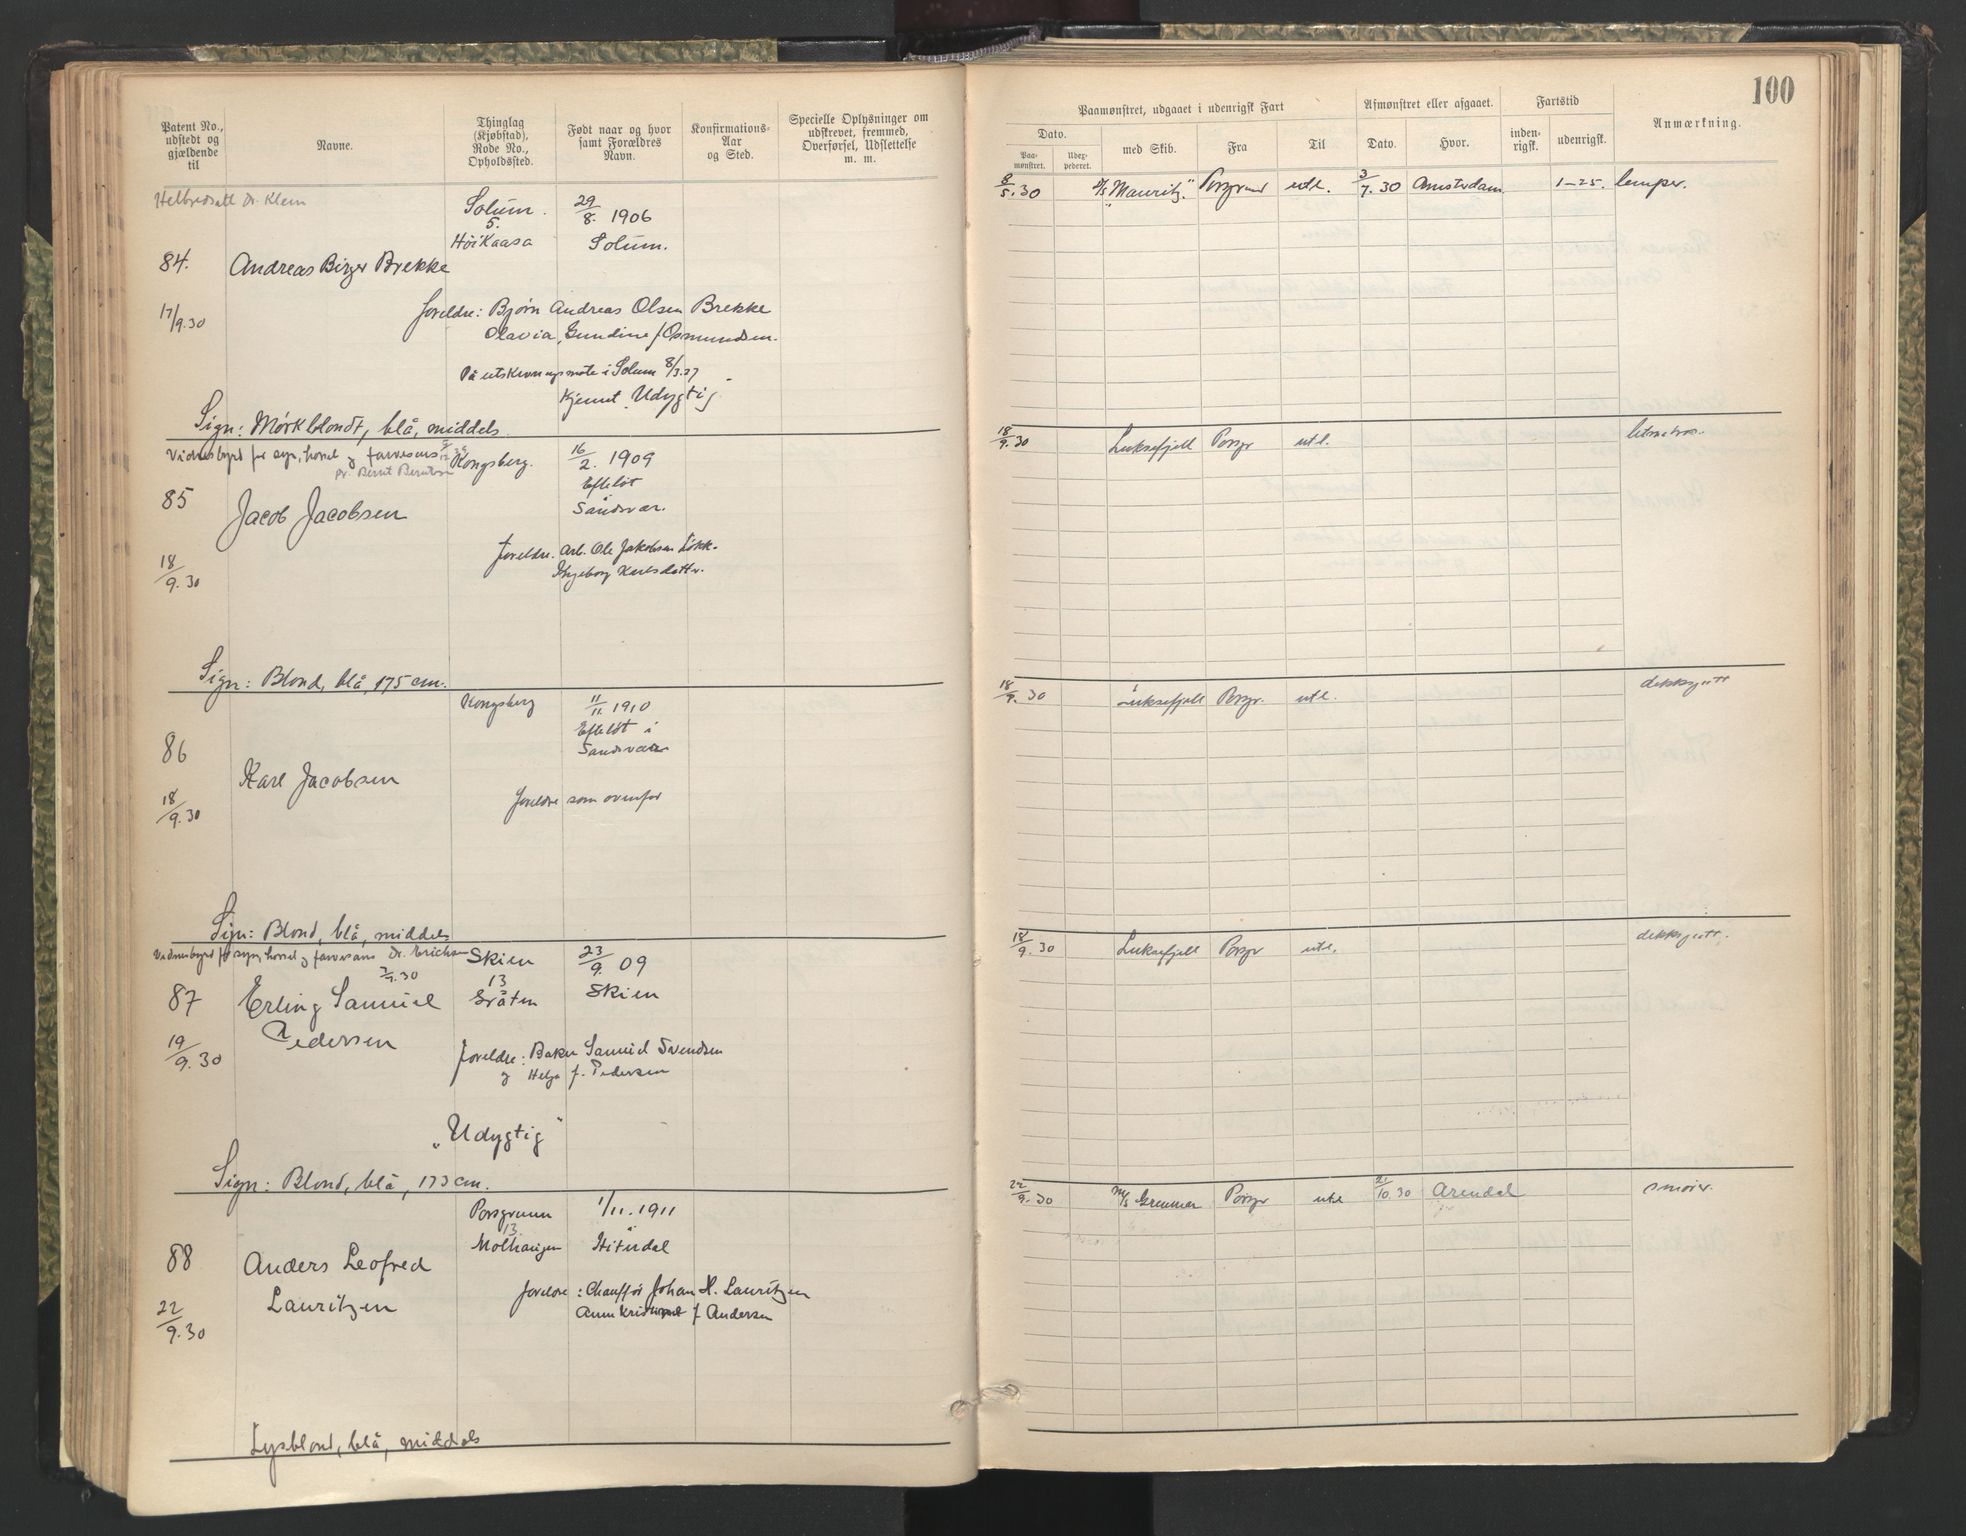 100
Patent No., udstedt og gjældende til
Navne.
Thinglag (Kjøbstad), Rode No., Opholdssted.
Født naar og hvor samt Forældres Navn.
Konfirmations-Aar og Sted.
Specielle Oplysninger om udskrevet, fremmed, Overførsel, Udslettelse m. m.
Paamønstret, udgaaet i udenrigsk Fart
Afmønstret eller afgaaet.
Fartstid
Anmærkning.
Dato.
Paamønstret.
med Skib.
Fra
Til
Dato.
Hvor.
indenrigsk.
udenrigsk.
Helbredsatt Dr. Klem
Solum.
5.
Høikaasa
29/8. 1906
Solum.
84.
Andreas Birger Brekke
17/9.30
foreldre: Bjørn Andreas Olsen Brekke
Olavia Gundine f Osmundsen.
På utskrivningsmøte i Solum 8/3.27
Kjennt "Udygtig"
Sign: Mørkblondt, blå, middels.
8/5.30 D/S "Mauritz." Porsgrund utl. 3/7.30 Amsterdam 1-25. lemper.
Vidnesbyrd for syn, hørsel og farvesans
Kongsberg.
16/2. 1909
Efteløt
Sandsvær.
85
Jacob Jacobsen
18/9.30
foreldre. Arb. Ole Jakobsen Løkk.
Ingeborg Karlsdatter.
Sign: Blond, blå, 175 cm.
18/9.30 Luksefjell Porsgr utl. letmatros.
Kongsberg
11/11. 1910
Efteløt i
Sandsvær
86
Karl Jacobsen
18/9.30
foreldre som ovenfor
Sign: Blond, blå, middels
18/9.30 Luksefjell Porsgr. utl. dekksgutt
Vidnesbyrd for syn, hørsel og farvesans Dr. Erichsen
Skien
13
Gråten
23/9. 09
Skien
87
Erling Samuel
Pedersen
19/9.30
foreldre: Baker Samuel Svendsen
og Helga f. Pedersen
"Udygtig"
Sign: Blond, blå, 173 cm.
18/9.30 Luksefjell Porsgr utl. dekksgutt.
Porsgrunn
13
Molhaugen
1/11. 1911
Hitterdal
88
Anders Leofred
Lauritzen
22/9.30
foreldre: Chauffør Johan H. Lauritzen
f Andersen
Lysblond, blå, middels
22/9.30 M/S Grenmar Porsgr utl 21/10.30 Arendal smører.